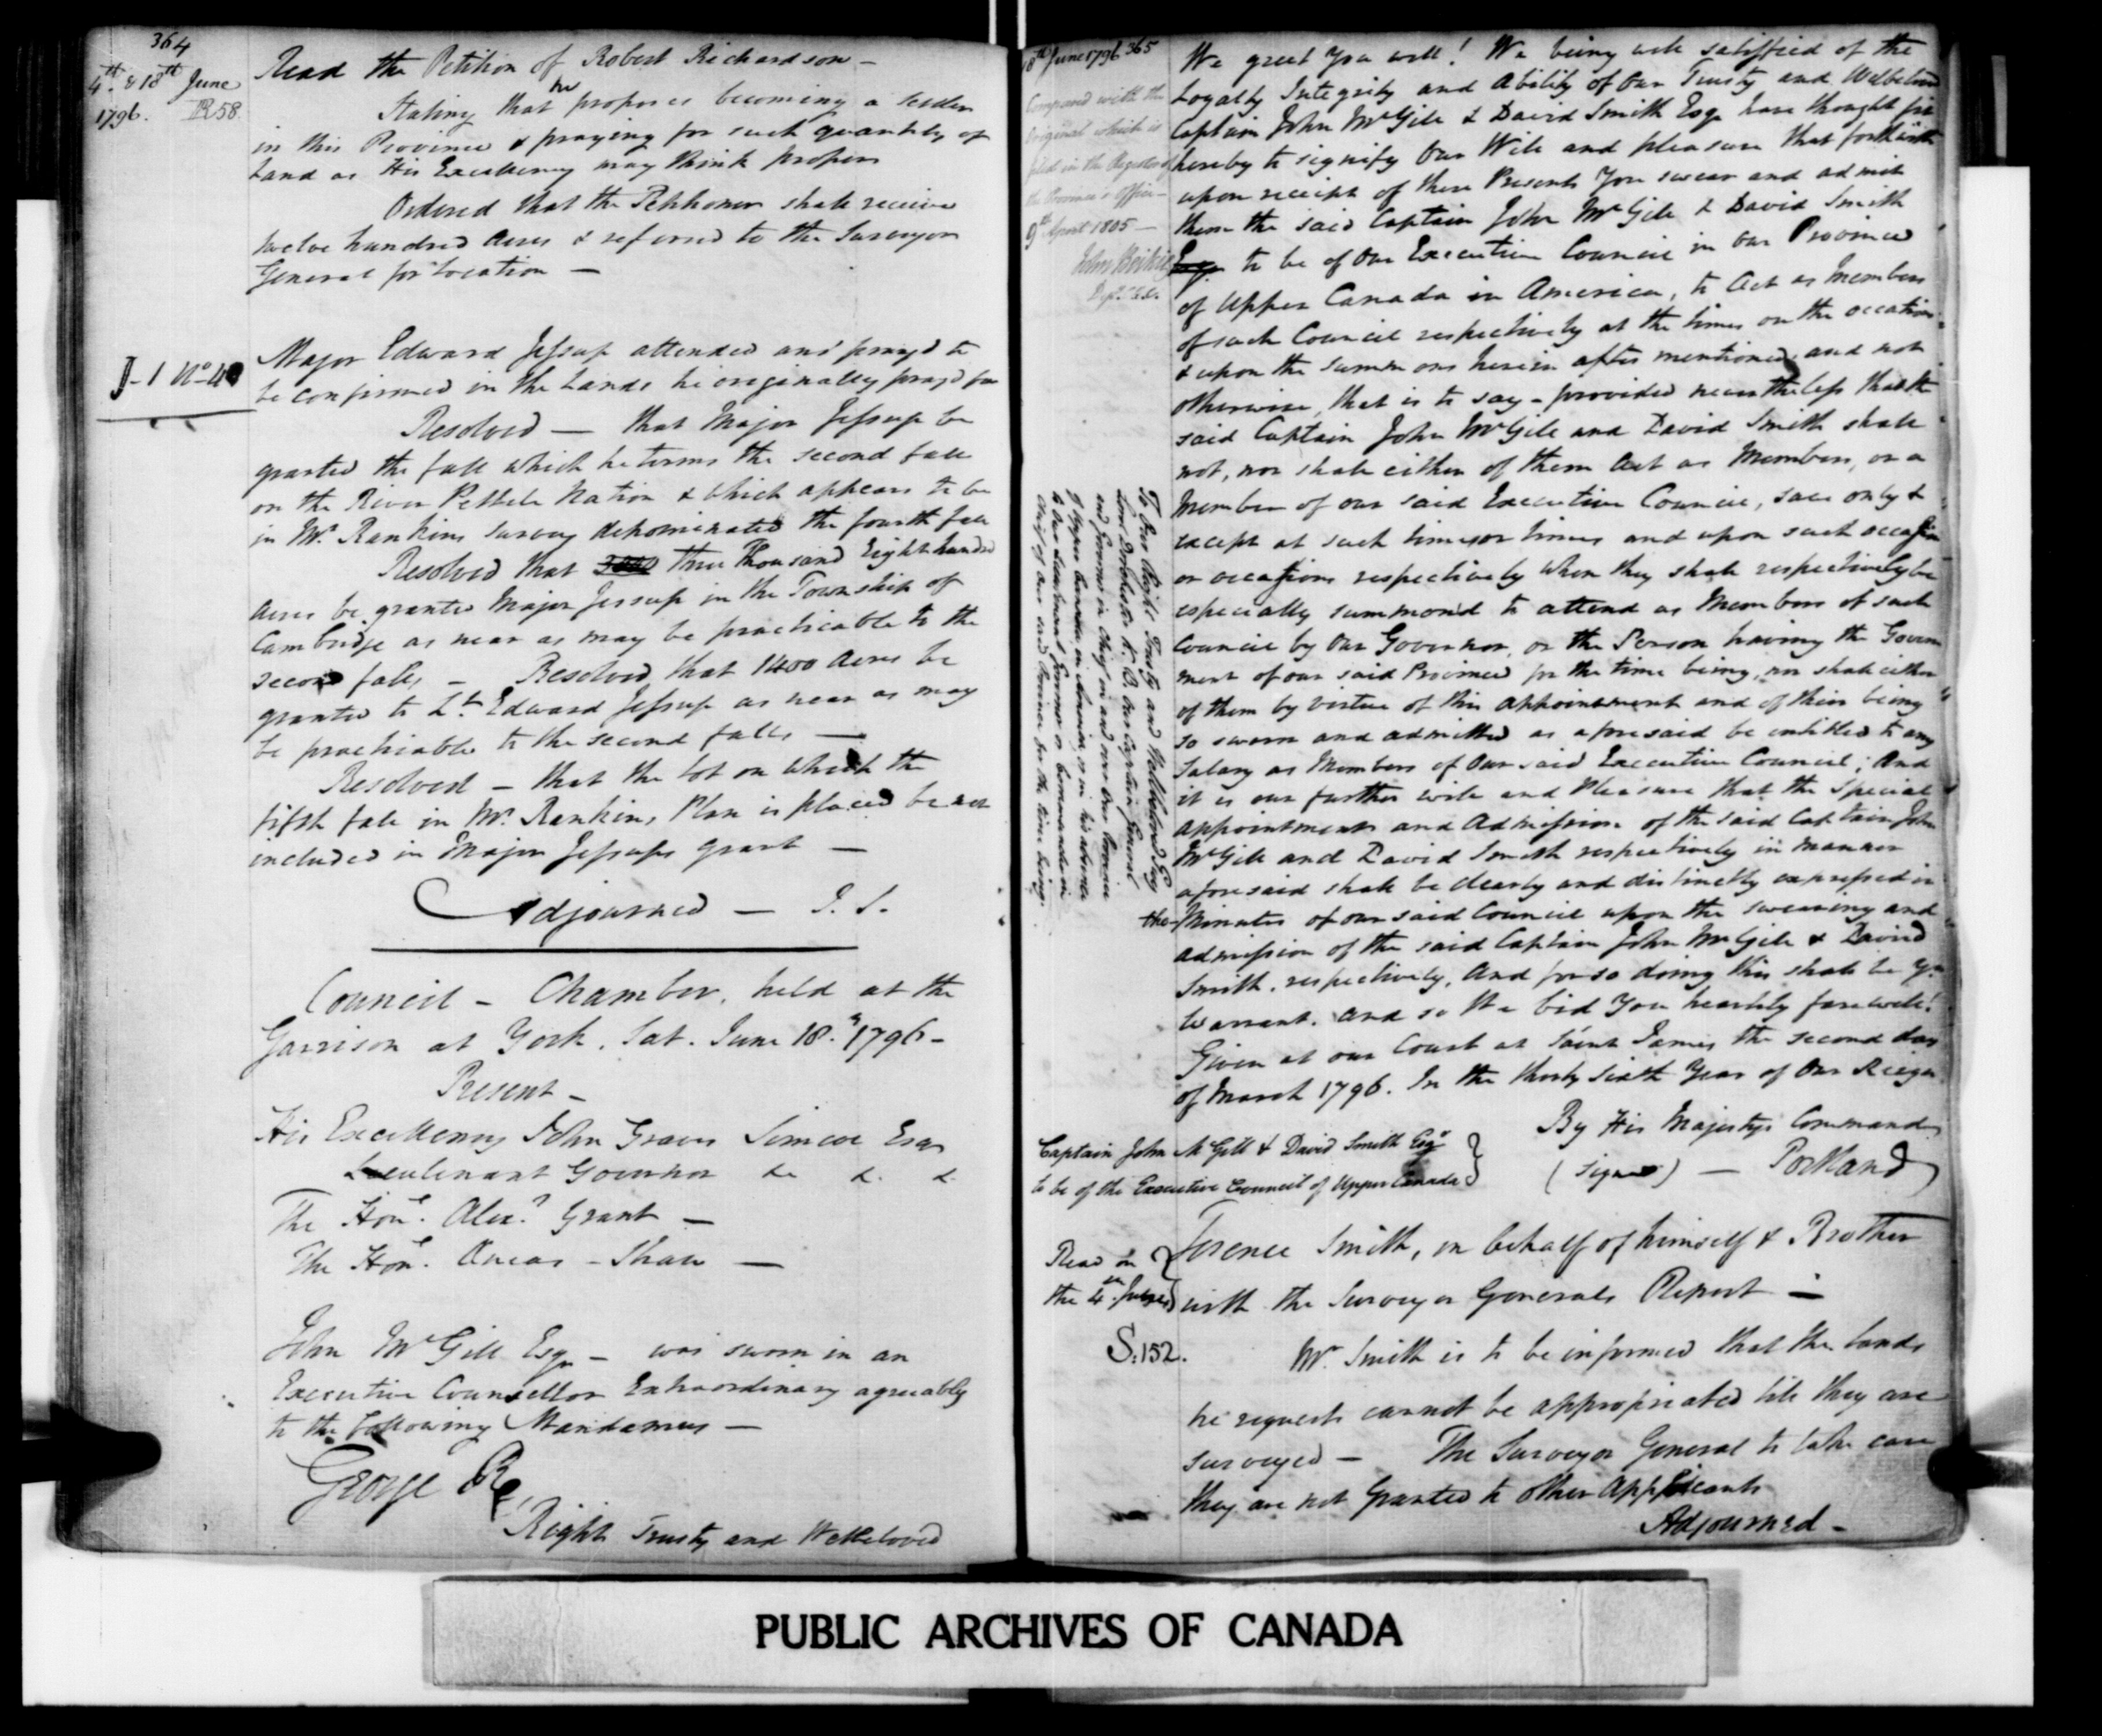 364
4th & 18th June
1796. R 58.
Read the Petition of Robert Richardson —
Stating that he proposes becoming a settler
in this Province & praying for such quantity of
Land as His Excellency may think proper
Ordered that the Petitioner shall receive
twelve hundred Acres & referred to the Surveyor
General for Location —
J-1 No 40
Major Edward Jessup attended and pray'd to
be confirmed in the Lands he originally pray'd for
Resolved — that Major Jessup be
granted the fall which he terms the second fall
on the River Petite Nation & which appears to be
in Mr. Rankins Survey denominated the fourth fall
Resolved that three Thousand Eight hundred
Acres be granted Major Jessup in the Township of
Cambridge as near as may be practicable to the
second falls — Resolved, that 1400 Acres be
granted to Lt. Edward Jessup as near as may
be practicable to the second falls —
Resolved — that the Lot on which the
fifth fall in Mr. Rankins Plan is placed be not
included in Major Jessups grant —
Adjourned — J. S.
Council — Chamber, held at the
Garrison at York, Sat. June 18. 1796 —
Present —
His Excellency John Graves Simcoe Esqr
Lieutenant Governor &c &c. &c.
The Hon. Alexr Grant —
The Hon. Aneas — Shaw —
John McGill Esqr — was sworn in an
Executive Counsellor Extraordinary agreeably
to the following Mandamus —
George R.
Right Trusty and Wellbeloved
18th June 1796 365
Compared with the
Original which is
filed in the Register of
the Province's Office —
9th April 1805 —
John Beikie
We greet You well! We being well satisfied of the
Loyalty Integrity and Ability of Our Trusty and Welbeloved
Captain John McGill & David Smith Esqr have thought fit
hereby to signify Our Will and pleasure that forthwith
upon receipt of these Presents You swear and admit
them the said Captain John McGill & David Smith
Esqr to be of Our Executive Council in Our Province
of Upper Canada in America, to Act as Members
of such Council respectively at the times on the occations
& upon the Summons herein after mentioned, and not
otherwise, that is to say — provided nevertheless that the
said Captain John McGill and David Smith shall
not, nor shall either of them Act as Members, or a
Member of our said Executive Council, save only &
except at such time or times and upon such occasion
or occasions respectively when they shall respectively be
especially summon'd to attend as Members of such
Council by Our Governor, or the Person having the Govern
ment of our said Province for the time being, nor shall either
of them by virtue of this appointment and of their being
so sworn and admitted as aforesaid be entitled to any
Salary as Members of Our said Executive Council; And
it is our further will and Pleasure that the Special
Appointments and Admissions of the said Captain John
McGill and David Smith respectively in manner
aforesaid shall be clearly and distinctly expressed in
the Minutes of our said Council upon the swearing and
admission of the said Captain John McGill & David
Smith, respectively, And for so doing this shall be Yr
Warrant. And so We bid You heartily farewell!
Given at our Court at Saint James the second day
of March 1796. In the thirty Sixth Year of Our Reign
By His Majestys Command
(Signed) — Portland
To Our Right Trusty and Wellbeloved Guy
Lord Dorchester K. B. Our Captain General
and Governor in Chief in and over Our Province
of Upper Canada in America, or in his absence
to Our Lieutenant Governor or Commander in
Chief of Our said Province for the time being.
Captain John McGill & David Smith Esqr
to be of the Executive Council of Upper Canada
Read on
the 4th
S:152.
Terence Smith, on behalf of himself & Brother
with the Surveyor Generals Report —
Mr. Smith is to be informed that the Lands
he requests cannot be appropriated till they are
surveyed — The Surveyor General to take care
they are not Granted to other Applicants
Adjourned —
PUBLIC ARCHIVES OF CANADA